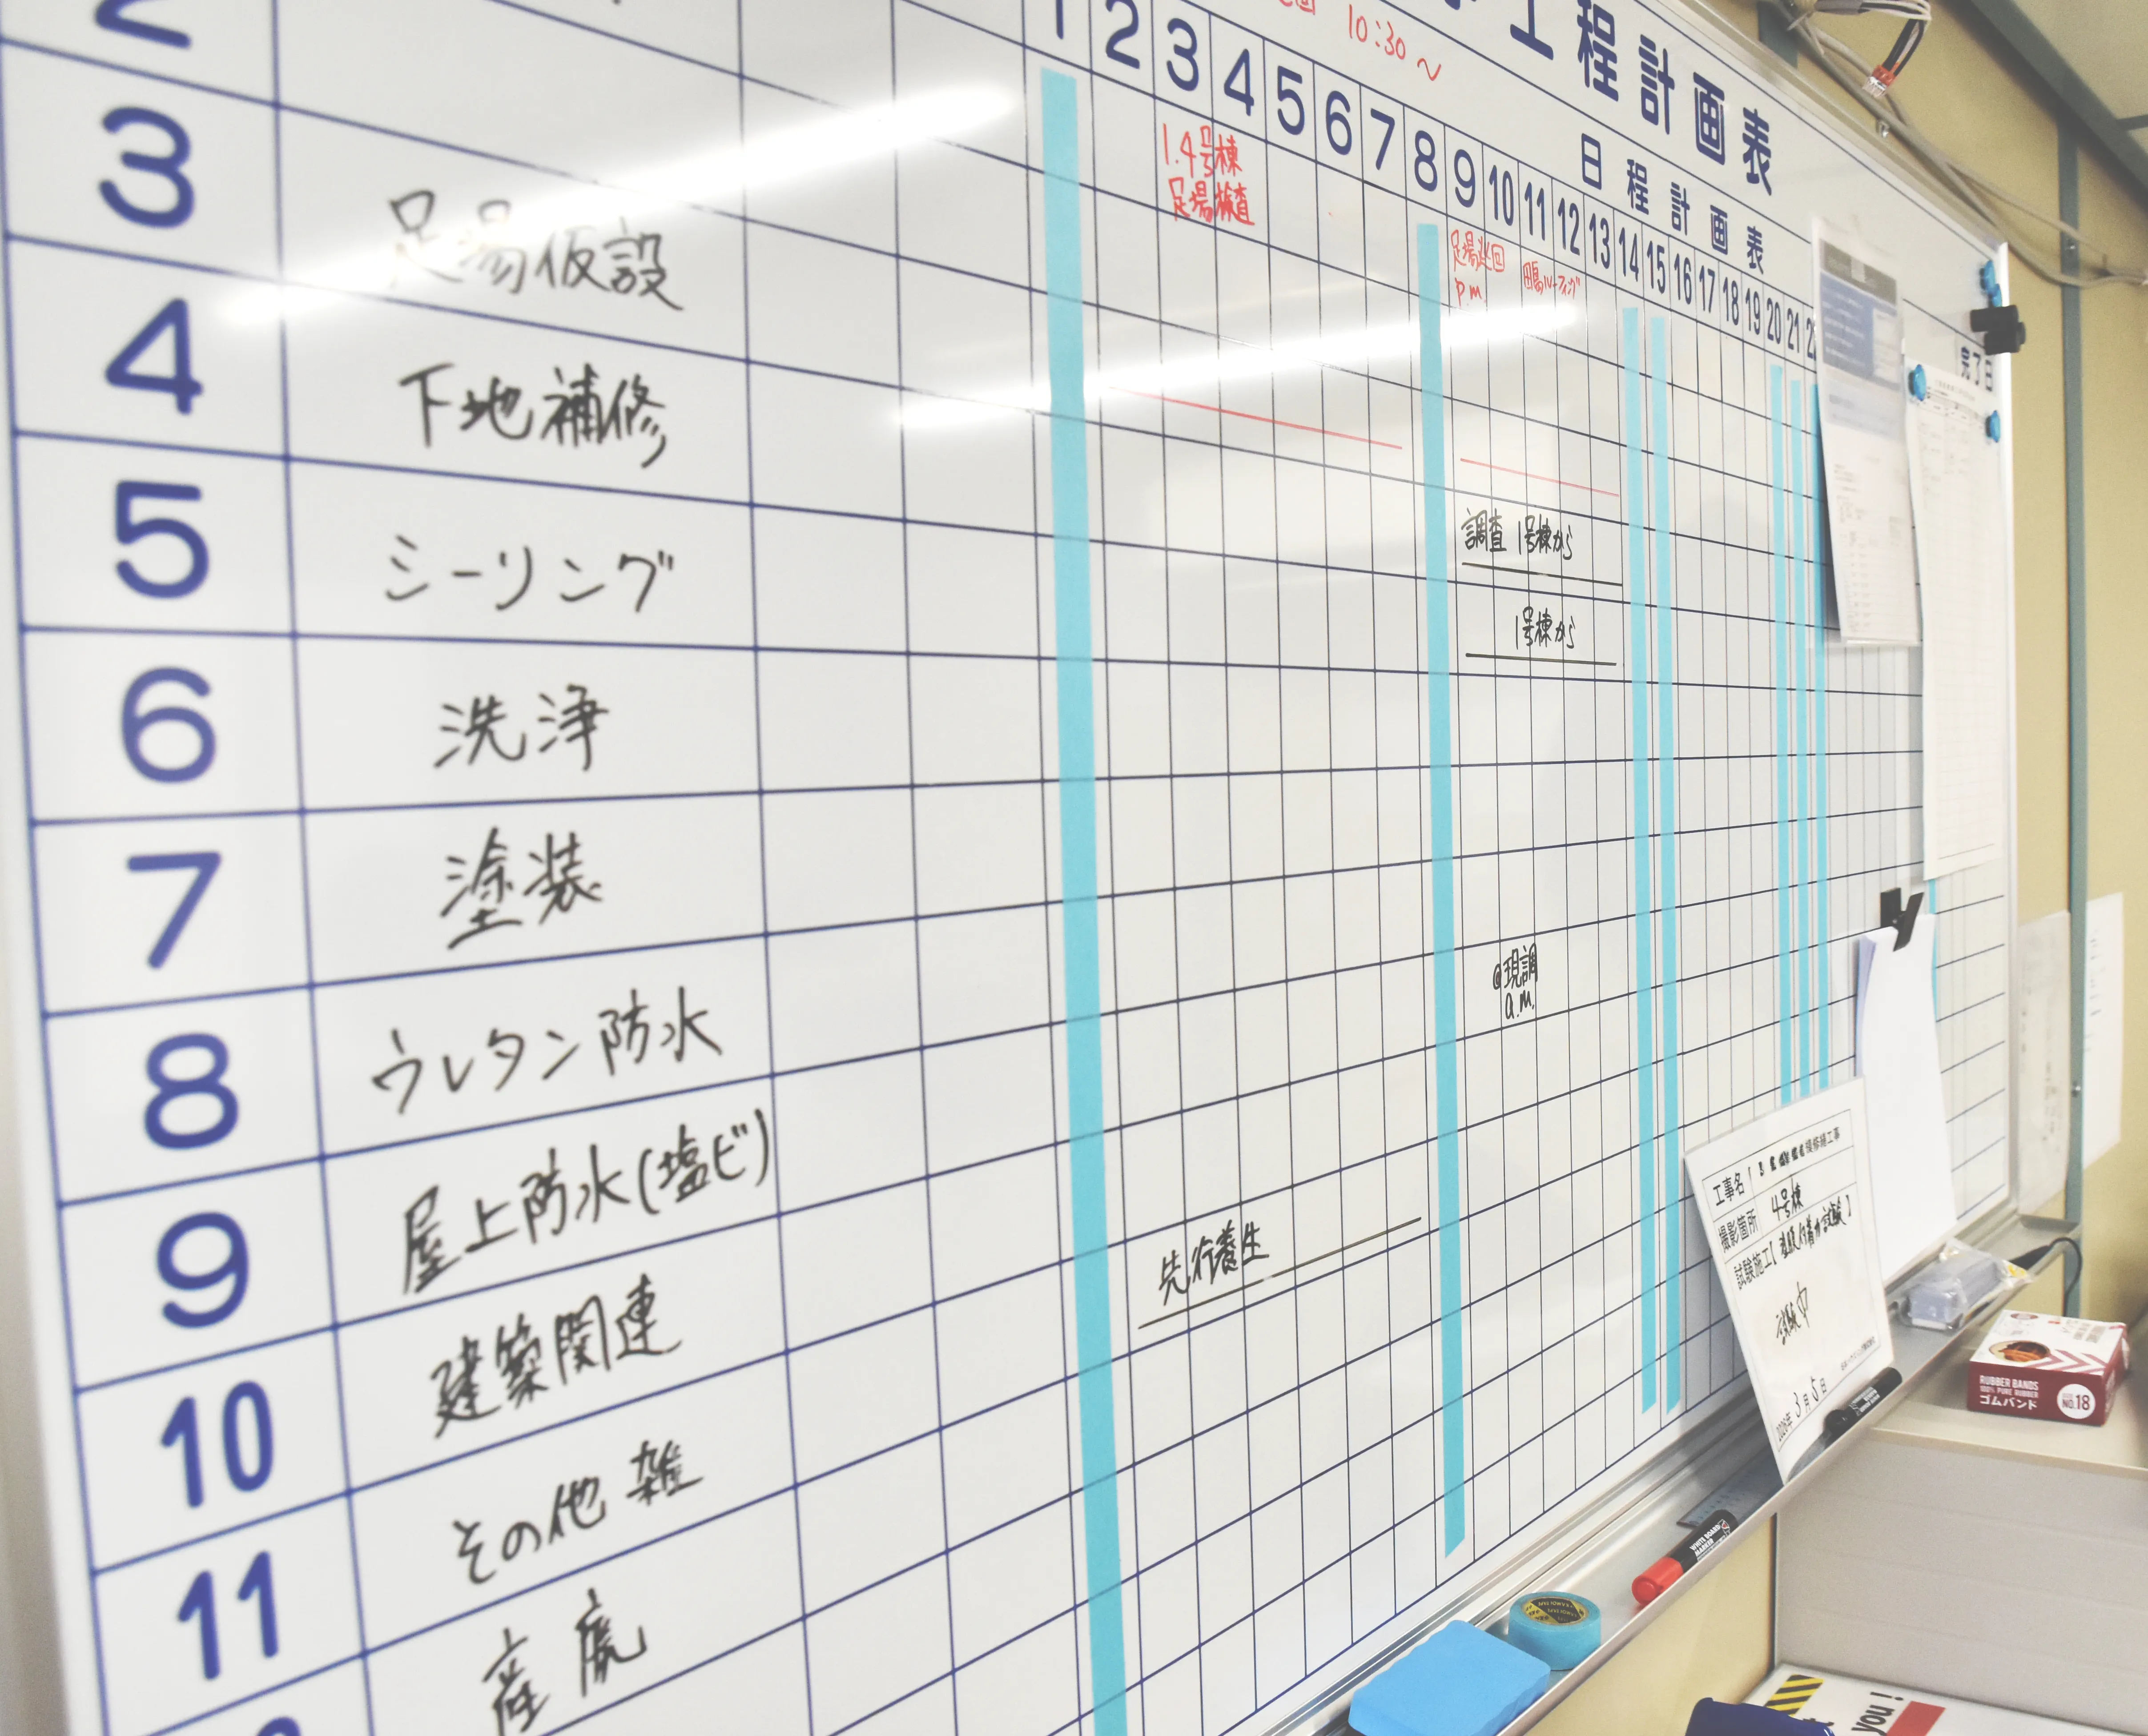 工程計画表
10:30～
日程計画表
完了日
1 2 3 4 5 6 7 8 9 10 11 12 13 14 15 16 17 18 19 20 21
1.4号棟
足場検査
足場巡回
p.m.
田島ルーフィング
2
3 足場仮設
4 下地補修
調査 1号棟から
5 シーリング
1号棟から
6 洗浄
7 塗装
8 ウレタン防水
@現調
a.m.
9 屋上防水(塩ビ)
10 建築関連
先行養生
11 その他 雑
産廃
工事名
撮影箇所 4号棟
試験施工
試験中
3月5日
RUBBER BANDS
100% PURE RUBBER
ゴムバンド
NO.18
WHITE BOARD
MARKER
you!